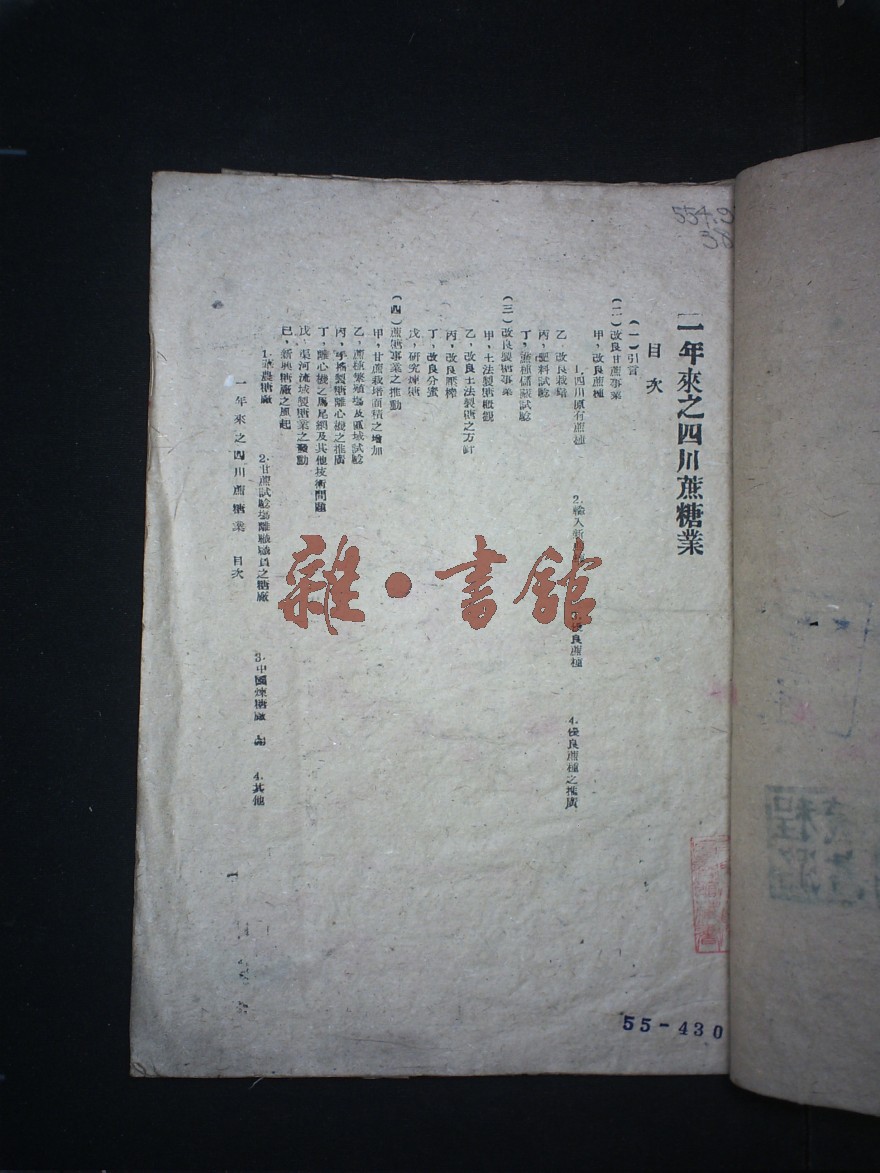 554.9
38
一年來之四川蔗糖業
目次
(一)引言
(二)改良甘蔗事業
甲，改良蔗種
1.四川原有蔗種 2.輸入新 優良蔗種 4.優良蔗種之推廣
乙，改良栽培
丙，肥料試驗
丁，蔗種儲藏試驗
(三)改良製糖事業
甲，土法製糖概觀
乙，改良土法製糖之方針
丙，改良壓榨
丁，改良分蜜
戊，研究煉糖
(四)蔗糖事業之推動
甲，甘蔗栽培面積之增加
乙，蔗種繁殖場及區域試驗
丙，手搖製糖離心機之推廣
丁，離心機之馬尾網及其他技術問題
戊， 河流域製糖業之發動
巳，新興糖廠之風起
1.華農糖廠 2.甘蔗試驗場離職職員之糖廠 3.中國煉糖廠 4.其他
一年來之四川蔗糖業 目次
一
雜·書館
55-430